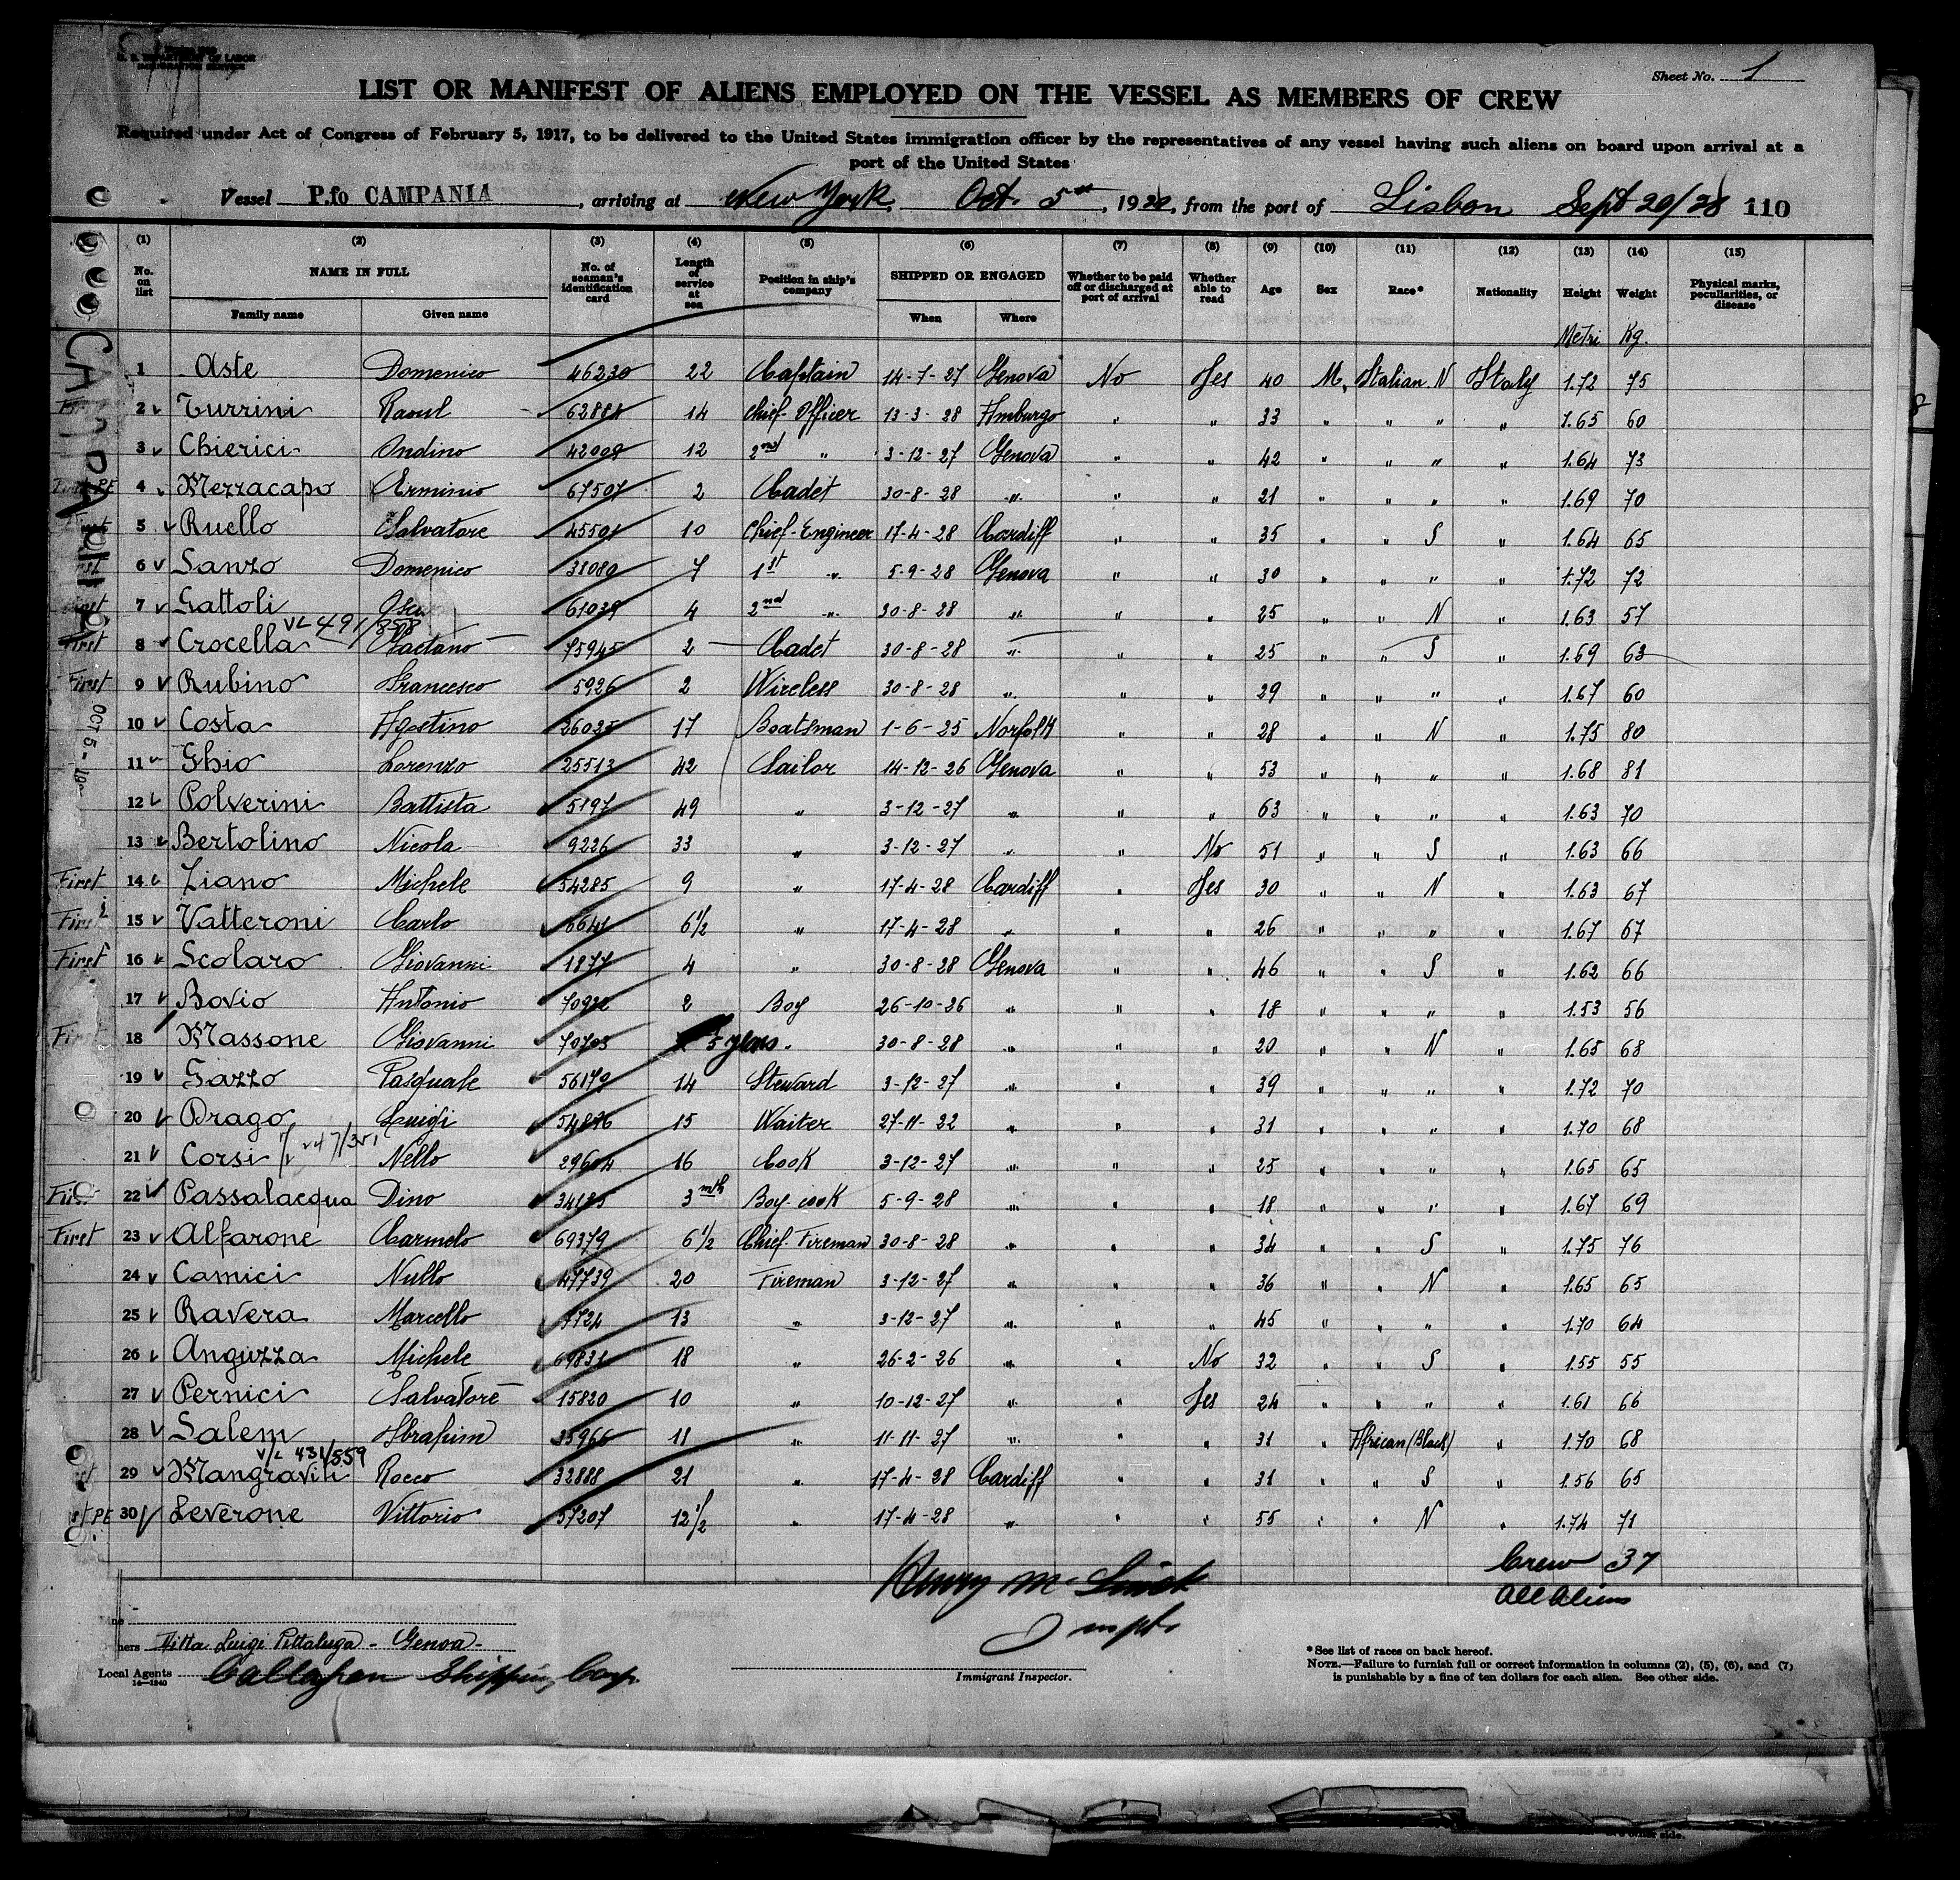 U. S. DEPARTMENT OF LABOR
IMMIGRATION SERVICE
Sheet No. 1
LIST OR MANIFEST OF ALIENS EMPLOYED ON THE VESSEL AS MEMBERS OF CREW
Required under Act of Congress of February 5, 1917, to be delivered to the United States immigration officer by the representatives of any vessel having such aliens on board upon arrival at a
port of the United States
Vessel P.fo CAMPANIA, arriving at New York, Oct. 5th, 1928, from the port of Lisbon Sept 20/28 110
(1) (2) (3) (4) (5) (6) (7) (8) (9) (10) (11) (12) (13) (14) (15)
No. on list NAME IN FULL No. of seaman's identification card Length of service at sea Position in ship's company SHIPPED OR ENGAGED Whether to be paid off or discharged at port of arrival Whether able to read Age Sex Race* Nationality Height Weight Physical marks, peculiarities, or disease
Family name Given name When Where
Metri Kg.
1 Aste Domenico 46230 22 Captain 14-7-27 Genova No Yes 40 M. Italian N Italy 1.72 75
2 Turrini Raoul 62884 14 Chief Officer 13-3-28 Amburgo " " 33 " " " " 1.65 60
3 Chierici Ondino 42008 12 2nd " 3-12-27 Genova " " 42 " " " " 1.64 73
4 Mezzacapo Erminio 67507 2 Cadet 30-8-28 " " " 21 " " " " 1.69 70
5 Ruello Salvatore 45501 10 Chief-Engineer 17-4-28 Cardiff " " 35 " " S " 1.64 65
6 Sanzo Domenico 38080 7 1st " 5-9-28 Genova " " 30 " " " " 1.72 72
7 Gattoli 61039 4 2nd " 30-8-28 " " " 25 " " N " 1.63 57
VL 491/858
First 8 Crocella Gaetano 75945 2 Cadet 30-8-28 " " " 25 " " S " 1.69 63
First 9 Rubino Francesco 5926 2 Wireless 30-8-28 " " " 29 " " " " 1.67 60
10 Costa Agostino 26035 17 Boatsman 1-6-25 Norfolk " " 28 " " N " 1.75 80
11 Ghio Lorenzo 25513 42 Sailor 14-12-26 Genova " " 53 " " " " 1.68 81
12 Polverini Battista 5197 49 " 3-12-27 " " " 63 " " " " 1.63 70
13 Bertolino Nicola 9226 33 " 3-12-27 " " No 51 " " S " 1.63 66
First 14 Ziano Michele 54285 9 " 17-4-28 Cardiff " Yes 30 " " N " 1.63 67
First 15 Vatteroni Carlo 6641 6 1/2 " 17-4-28 " " " 26 " " " " 1.67 67
First 16 Scolaro Giovanni 1877 4 " 30-8-28 Genova " " 46 " " S " 1.62 66
17 Bovio Antonio 70922 2 Boy 26-10-26 " " " 18 " " " " 1.53 56
First 18 Massone Giovanni 70703 5 years " 30-8-28 " " " 20 " " N " 1.65 68
19 Gazzo Pasquale 56179 14 Steward 3-12-27 " " " 39 " " " " 1.72 70
20 Drago Luigi 54896 15 Waiter 27-11-22 " " " 31 " " " " 1.70 68
21 Corsi Nello 29604 16 Cook 3-12-27 " " " 25 " " " " 1.65 65
First 22 Passalacqua Dino 34185 3 mth Boy-cook 5-9-28 " " " 18 " " " " 1.67 69
First 23 Alfarone Carmelo 69379 6 1/2 Chief-Fireman 30-8-28 " " " 34 " " S " 1.75 76
24 Camici Nullo 47739 20 Fireman 3-12-27 " " " 36 " " N " 1.65 65
25 Ravera Marcello 9724 13 " 3-12-27 " " " 45 " " " " 1.70 64
26 Anguzza Michele 69831 18 " 26-2-26 " " No 32 " " S " 1.55 55
27 Pernici Salvatore 15820 10 " 10-12-27 " " Yes 24 " " " " 1.61 66
28 Salem Ibrahim 35966 11 " 11-11-27 " " " 31 " African (Black) " 1.70 68
V/L 431/559
29 Mangraviti Rocco 32888 21 " 17-4-28 Cardiff " " 31 " " S " 1.56 65
30 Leverone Vittorio 57207 12 1/2 " 17-4-28 " " " 55 " " N " 1.74 71
Crew 37
All Aliens
Ditta Luigi Pittaluga - Genoa -
Local Agents Callaghan Shipping Corp.
14-1240
Immigrant Inspector.
*See list of races on back hereof.
NOTE.—Failure to furnish full or correct information in columns (2), (5), (6), and (7)
is punishable by a fine of ten dollars for each alien. See other side.
CAMPANIA
OCT 5 -